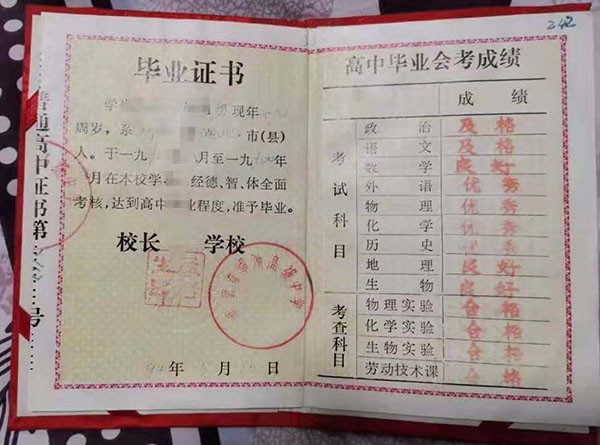 毕业证书
学生 现年
周岁，系 市(县)
人。于一九 月至一九 年
月在本校学 经德、智、体全面
考核，达到高中 业程度，准予毕业。
校长 学校
94年5月10日
普通高中证书第 号
242
高中毕业会考成绩
成绩
考试科目
政治 及格
语文 及格
数学 良好
外语 优秀
物理 优秀
化学 优秀
历史
地理 良好
生物 良好
考查科目
物理实验 合格
化学实验 合格
生物实验 合格
劳动技术课 合格